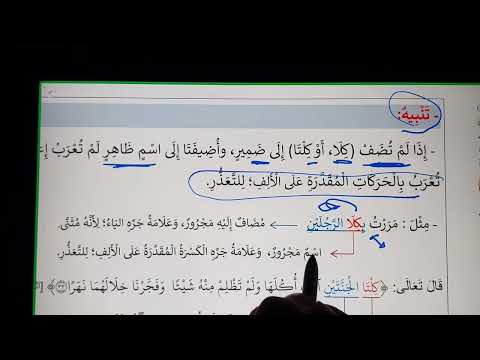 - تَنْبِيهٌ:
- إِذَا لَمْ تُضَفْ (كِلَا، أَوْ كِلْتَا) إِلَى ضَمِيرٍ، وأُضِيفَتَا إِلَى اسْمٍ ظَاهِرٍ لَمْ تُعْرَبْ
تُعْرَبُ بِالْحَرَكَاتِ الْمُقَدَّرَةِ عَلَى الْأَلِفِ؛ لِلتَّعَذُّرِ.
- مِثْلَ : مَرَرْتُ بِكِلَا الرَّجُلَيْنِ مُضَافٌ إِلَيْهِ مَجْرُورٌ، وَعَلَامَةُ جَرِّهِ الْيَاءُ؛ لِأَنَّهُ مُثَنًّى.
اسْمٌ مَجْرُورٌ، وَعَلَامَةُ جَرِّهِ الْكَسْرَةُ الْمُقَدَّرَةُ عَلَى الْأَلِفِ؛ لِلتَّعَذُّرِ.
قَالَ تَعَالَى: ﴿كِلْتَا الْجَنَّتَيْنِ أُكُلَهَا وَلَمْ تَظْلِمْ مِنْهُ شَيْئًا وَفَجَّرْنَا خِلَالَهُمَا نَهَرًا﴾